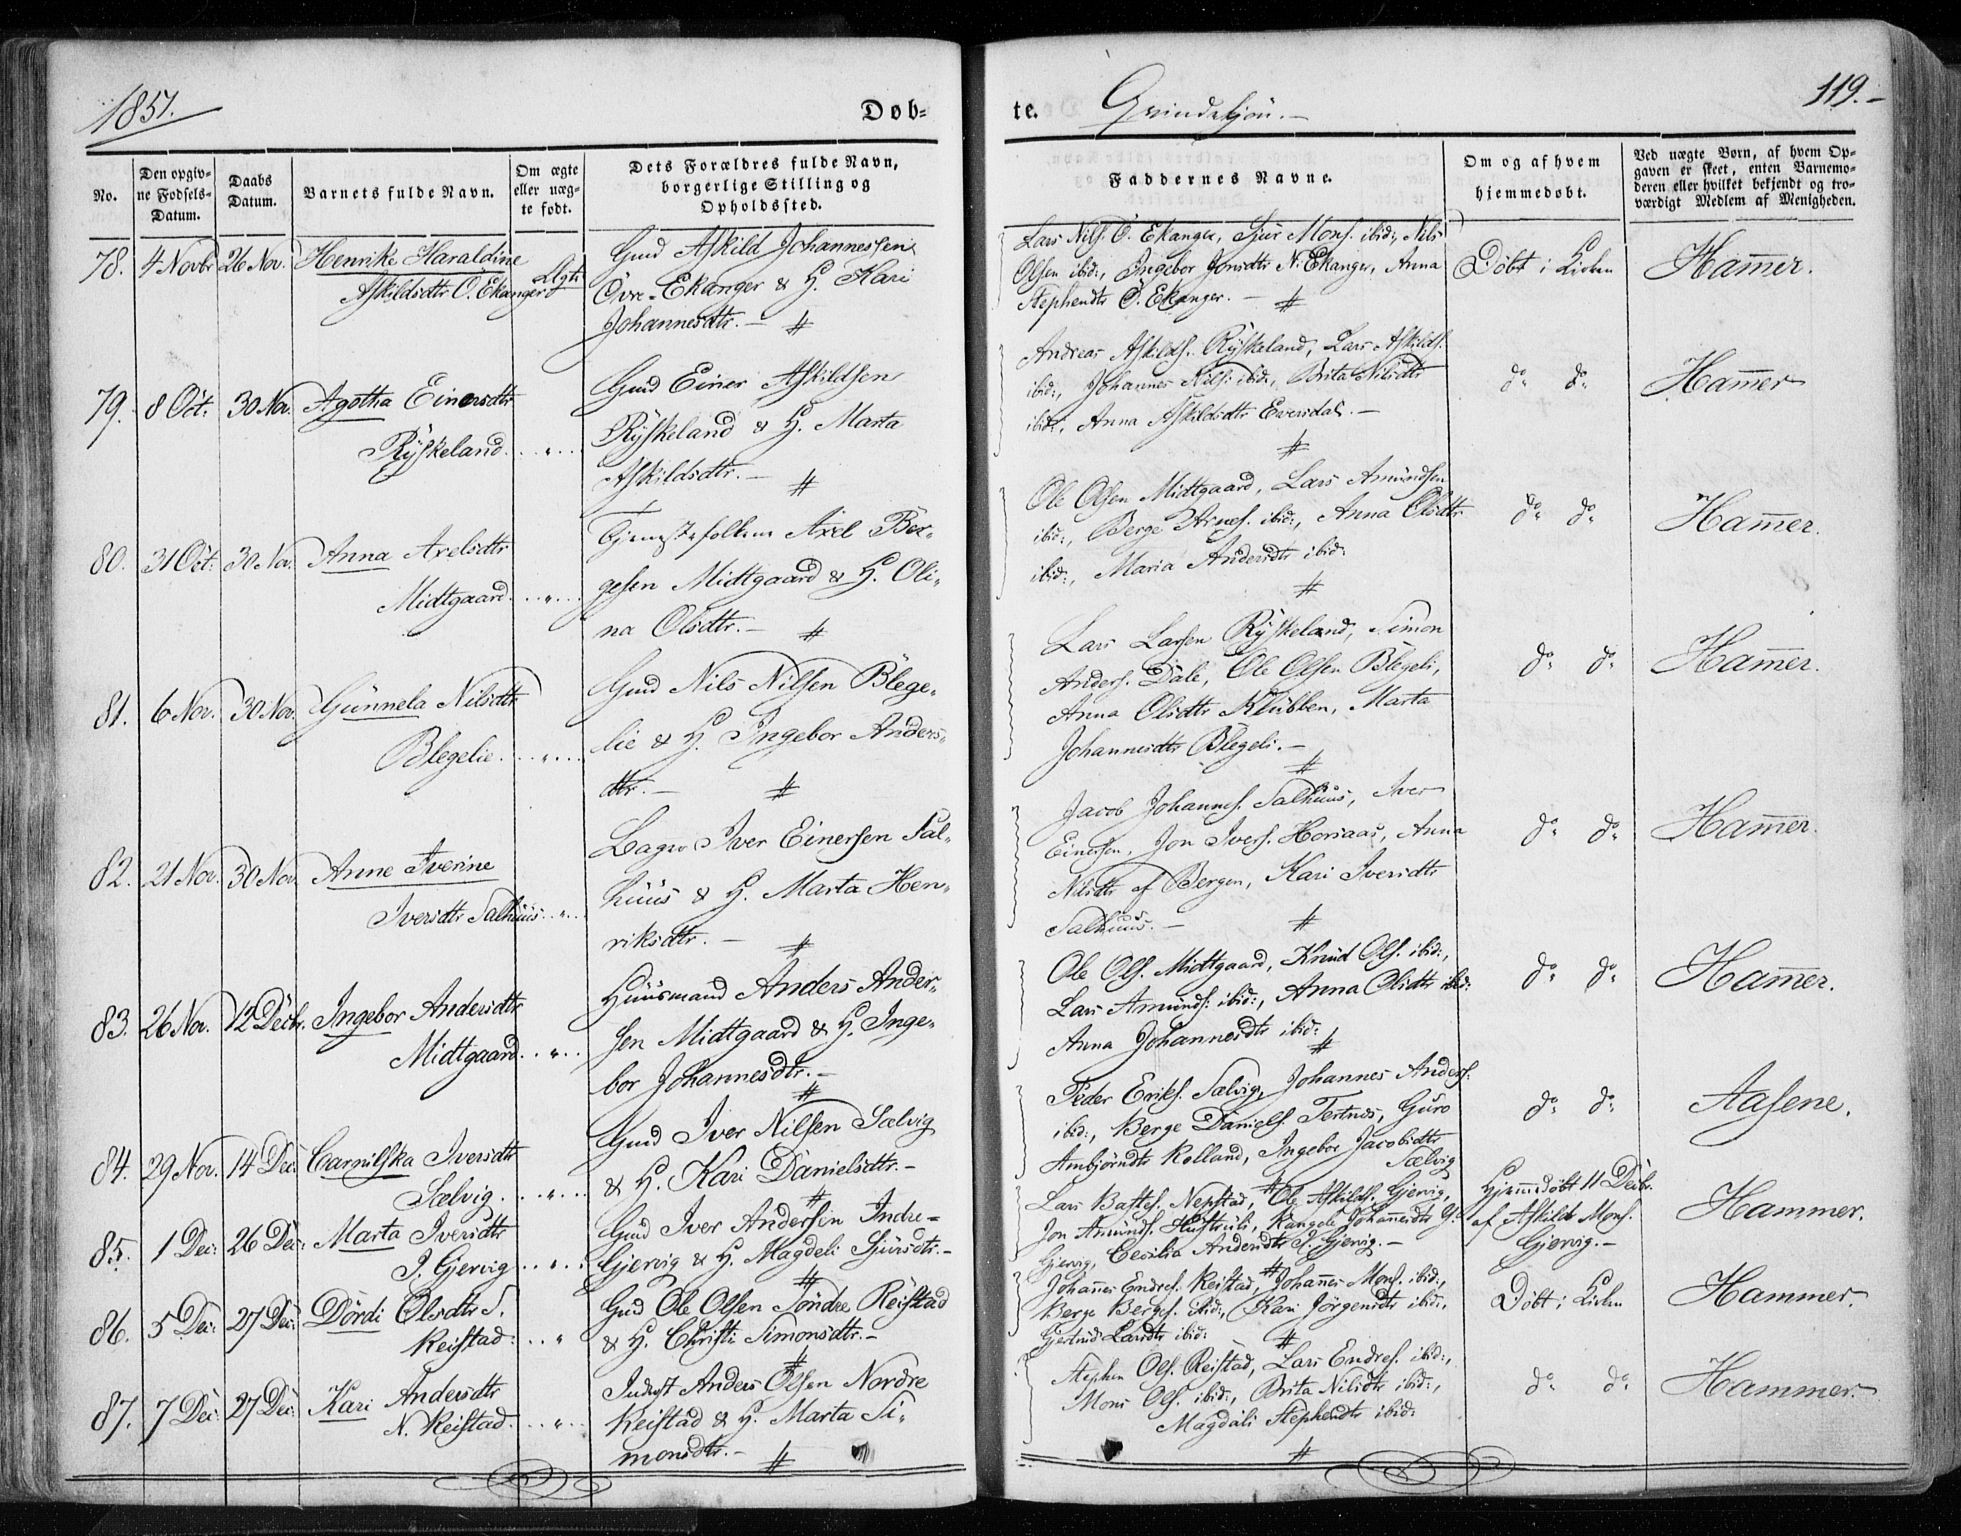 1851.
Døb-
te.
Qvindekjøn.-
119.-
No.
Den opgiv-
ne Fødsels-
Datum.
Daabs
Datum.
Barnets fulde Navn.
Om ægte
eller uæg-
te født.
Dets Forældres fulde Navn,
borgerlige Stilling og
Opholdssted.
Faddernes Navne.
Om og af hvem
hjemmedøbt.
Ved uægte Børn, af hvem Op-
gaven er skeet, enten Barnemo-
deren eller hvilket bekjendt og tro-
værdigt Medlem af Menigheden.
78. 4 Novbr 26 Nov. Henrike Haraldine
Askildsdtr Ö. Ekanger Ægte
Gmd Askild Johannessen
Övre-Ekanger & H. Kari
Johannesdtr.-
Lars Nils. Ö. Ekanger, Sjur Mons. ibid:, Nils
Olsen ibid:, Ingebor Jonsdtr N. Ekanger, Anna
Stephensdtr Ö. Ekanger.-
Döbt i Kirken
Ham̅er.
79. 8 Oct: 30 Nov. Agotha Einersdtr
Rÿskeland
Gmd Einer Askildsen
Rÿskeland & H. Marta
Askildsdtr.-
Andreas Askilds. Rÿskeland, Lars Askilds.
ibid:, Johannes Nils: ibid:, Brita Nilsdtr
ibid:, Anna Askildsdtr Eversdal.-
do do
Ham̅er
80. 31 Oct: 30 Nov. Anna Axelsdtr
Midtgaard
Tjenestefolkene Axel Ber-
gesen Midtgaard & H. Oli-
na Olsdtr.-
Ole Olsen Midtgaard, Lars Amundsen
ibid:, Berge Arnes. ibid:, Anna Olsdtr
ibid:, Maria Andersdtr ibid:
do do
Ham̅er.
81. 6 Nov. 30 Nov. Gunnela Nilsdtr
Blegelie
Gmd Nils Nilsen Blege-
lie & H. Ingebor Anders-
dtr.-
Lars Larsen Rÿskeland, Simon
Anders. Dale, Ole Olsen Blegeli,
Anna Olsdtr Klubben, Marta
Johannesdtr Blegeli.-
do do
Ham̅er.
82. 21 Nov. 30 Nov. Anne Iverine
Iversdtr Salhuus
Iver Einersen Sal-
huus & H. Marta Hen-
riksdtr.-
Jacob Johannes. Salhuus, Iver
Einersen, Jon Ivers. Horsaas, Anna
Nilsdtr af Bergen, Kari Iversdtr
Salhuus.-
do do
Ham̅er.
83. 26 Nov. 12 Decbr. Ingebor Andersdtr
Midtgaard
Huusmand Anders Ander-
sen Midtgaard & H. Inge-
bor Johannesdtr.-
Ole Ols. Midtgaard, Knud Ols. ibid:,
Lars Amunds: ibid:, Anna Olsdtr ibid:
Anna Johannesdtr ibid:
do do
Ham̅er.
84. 29 Nov. 14 Dec: Carnilska Iversdtr
Sælvig
Gmd Iver Nilsen Sælvig
& H. Kari Danielsdtr.-
Peder Eriks. Sælvig, Johannes Anders.
ibid:, Berge Daniels. Tertnes, Guro
Ambjörndtr Rolland, Ingebor Jacobsdtr
Sælvig
do do
Aasene.
85. 1 Dec: 26 Dec: Marta Iversdtr
I. Gjervig
Gmd Iver Andersen Indre-
Gjervig & H. Magdeli Sjursdtr.-
Lars Bastes. Nepstad, Ole Askilds. Gjervig,
Jon Amunds. Hustruli, Rangele Johannesdtr Y.
Gjervig, Cecilia Andersdtr I. Gjervig.-
Hjemmedöbt 11 Decbr.
af Askild Mons.
Gjervig.-
Hammer.
86. 5 Dec: 27 Dec: Dördi Olsdtr S.
Reistad
Gmd Ole Olsen Söndre Reistad
& H. Christi Simonsdtr.-
Johannes Endres. Reistad, Johannes Mons. ibid:,
Berge Berges. ibid:, Kari Jörgensdtr ibid:,
Gjertrud Larsdtr ibid:
Döbt i Kirken
Hammer.
87. 7 Dec: 27 Dec: Kari Andersdtr
N. Reistad
Inderst Anders Olsen Nordre
Reistad & H. Marta Si-
monsdtr.-
Stephen Ols. Reistad, Lars Endres. ibid:,
Mons Ols. ibid:, Brita Nilsdtr ibid:,
Magdali Stephensdtr ibid:
do do
Hammer.